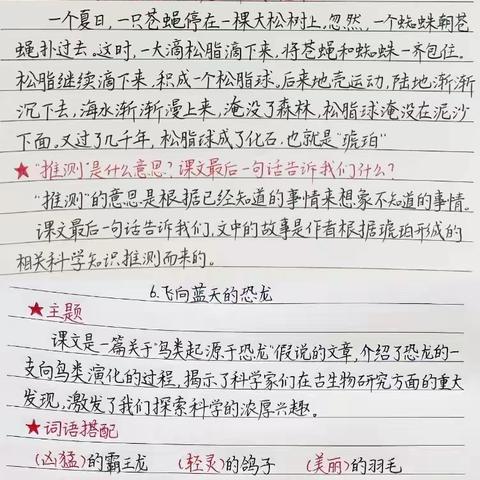 一个夏日,一只苍蝇停在一棵大松树上,忽然,一个蜘蛛朝苍
蝇扑过去。这时,一大滴松脂滴下来,将苍蝇和蜘蛛一齐包住。
松脂继续滴下来,积成一个松脂球。后来地壳运动,陆地渐渐
沉下去,海水渐渐漫上来,淹没了森林,松脂球淹没在泥沙
下面。又过了几千年,松脂球成了化石,也就是"琥珀"
★"推测"是什么意思?课文最后一句话告诉我们什么?
"推测"的意思是根据已经知道的事情来想象不知道的事情。
课文最后一句话告诉我们,文中的故事是作者根据琥珀形成的
相关科学知识推测而来的。
6.飞向蓝天的恐龙
★主题
课文是一篇关于"鸟类起源于恐龙"假说的文章,介绍了恐龙的一
支向鸟类演化的过程,揭示了科学家们在古生物研究方面的重大
发现,激发了我们探索科学的浓厚兴趣。
★词语搭配
(凶猛)的霸王龙 (轻灵)的鸽子 (美丽)的羽毛